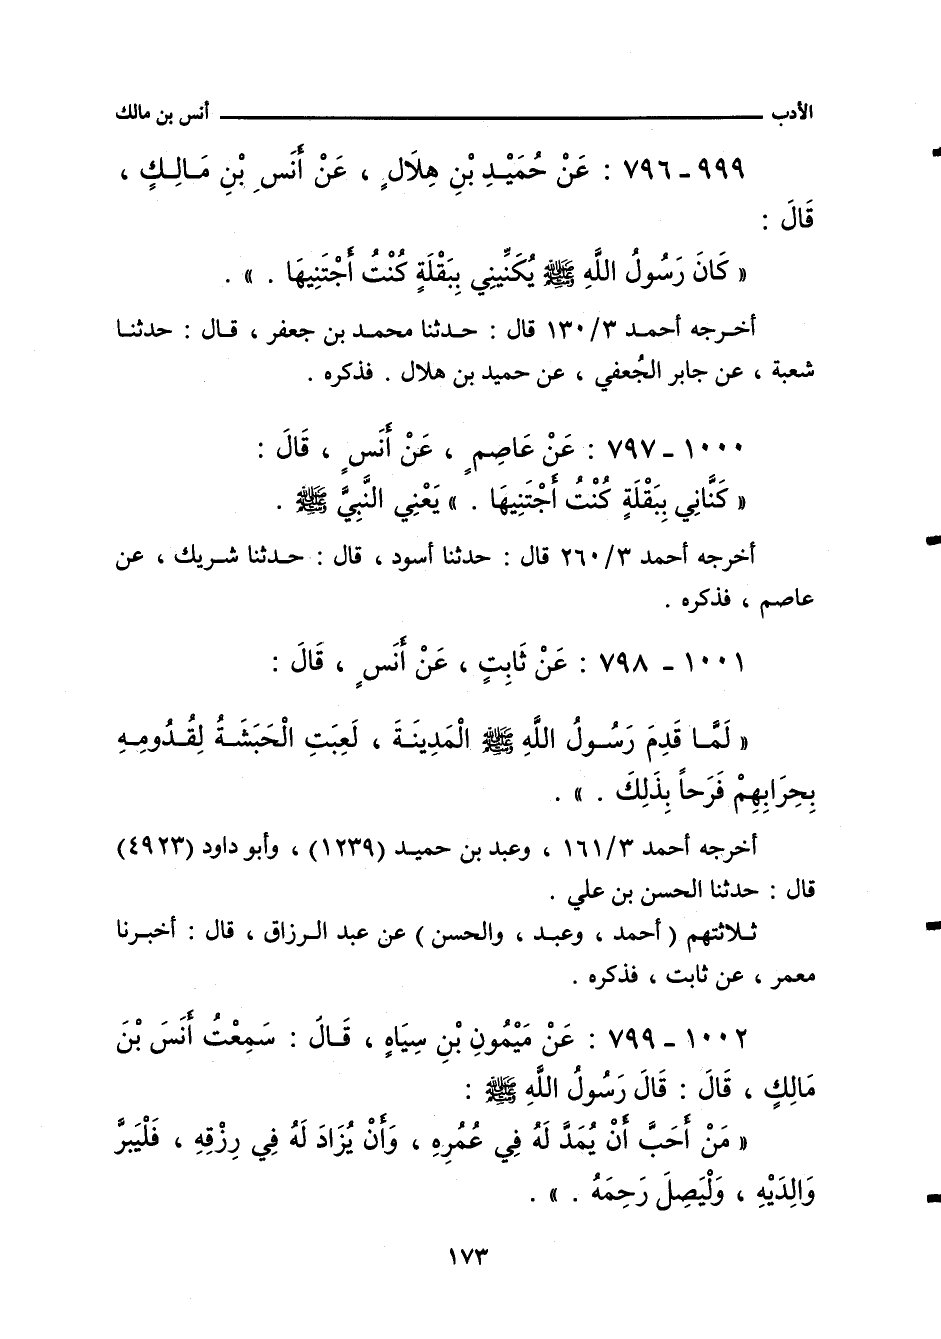 الأدب ـــــــــــــــــــــــــــــ أنس بن مالك
٩٩٩ ـ ٧٩٦ : عَنْ حُمَيْدِ بْنِ هِلَالٍ ، عَنْ أَنَسِ بْنِ مَالِكٍ ،
قَالَ :
« كَانَ رَسُولُ اللَّهِ ﷺ يُكَنِّينِي بِبَقْلَةٍ كُنْتُ أَجْتَنِيهَا . » .
أخرجه أحمد ١٣٠/٣ قال : حدثنا محمد بن جعفر ، قال : حدثنا
شعبة ، عن جابر الجُعفي ، عن حميد بن هلال . فذكره .
١٠٠٠ ـ ٧٩٧ : عَنْ عَاصِمٍ ، عَنْ أَنَسٍ ، قَالَ :
« كَنَّانِي بِبَقْلَةٍ كُنْتُ أَجْتَنِيهَا . » يَعْنِي النَّبِيَّ ﷺ .
أخرجه أحمد ٢٦٠/٣ قال : حدثنا أسود ، قال : حدثنا شريك ، عن
عاصم ، فذكره .
١٠٠١ ـ ٧٩٨ : عَنْ ثَابِتٍ ، عَنْ أَنَسٍ ، قَالَ :
« لَمَّا قَدِمَ رَسُولُ اللَّهِ ﷺ الْمَدِينَةَ ، لَعِبَتِ الْحَبَشَةُ لِقُدُومِهِ
بِحِرَابِهِمْ فَرَحاً بِذَلِكَ . » .
أخرجه أحمد ١٦١/٣ ، وعبد بن حميد (١٢٣٩) ، وأبو داود (٤٩٢٣)
قال : حدثنا الحسن بن علي .
ثلاثتهم ( أحمد ، وعبد ، والحسن ) عن عبد الرزاق ، قال : أخبرنا
معمر ، عن ثابت ، فذكره .
١٠٠٢ ـ ٧٩٩ : عَنْ مَيْمُونِ بْنِ سِيَاهٍ ، قَالَ : سَمِعْتُ أَنَسَ بْنَ
مَالِكٍ ، قَالَ : قَالَ رَسُولُ اللَّهِ ﷺ :
« مَنْ أَحَبَّ أَنْ يُمَدَّ لَهُ فِي عُمُرِهِ ، وَأَنْ يُزَادَ لَهُ فِي رِزْقِهِ ، فَلْيَبَرَّ
وَالِدَيْهِ ، وَلْيَصِلَ رَحِمَهُ . » .
١٧٣